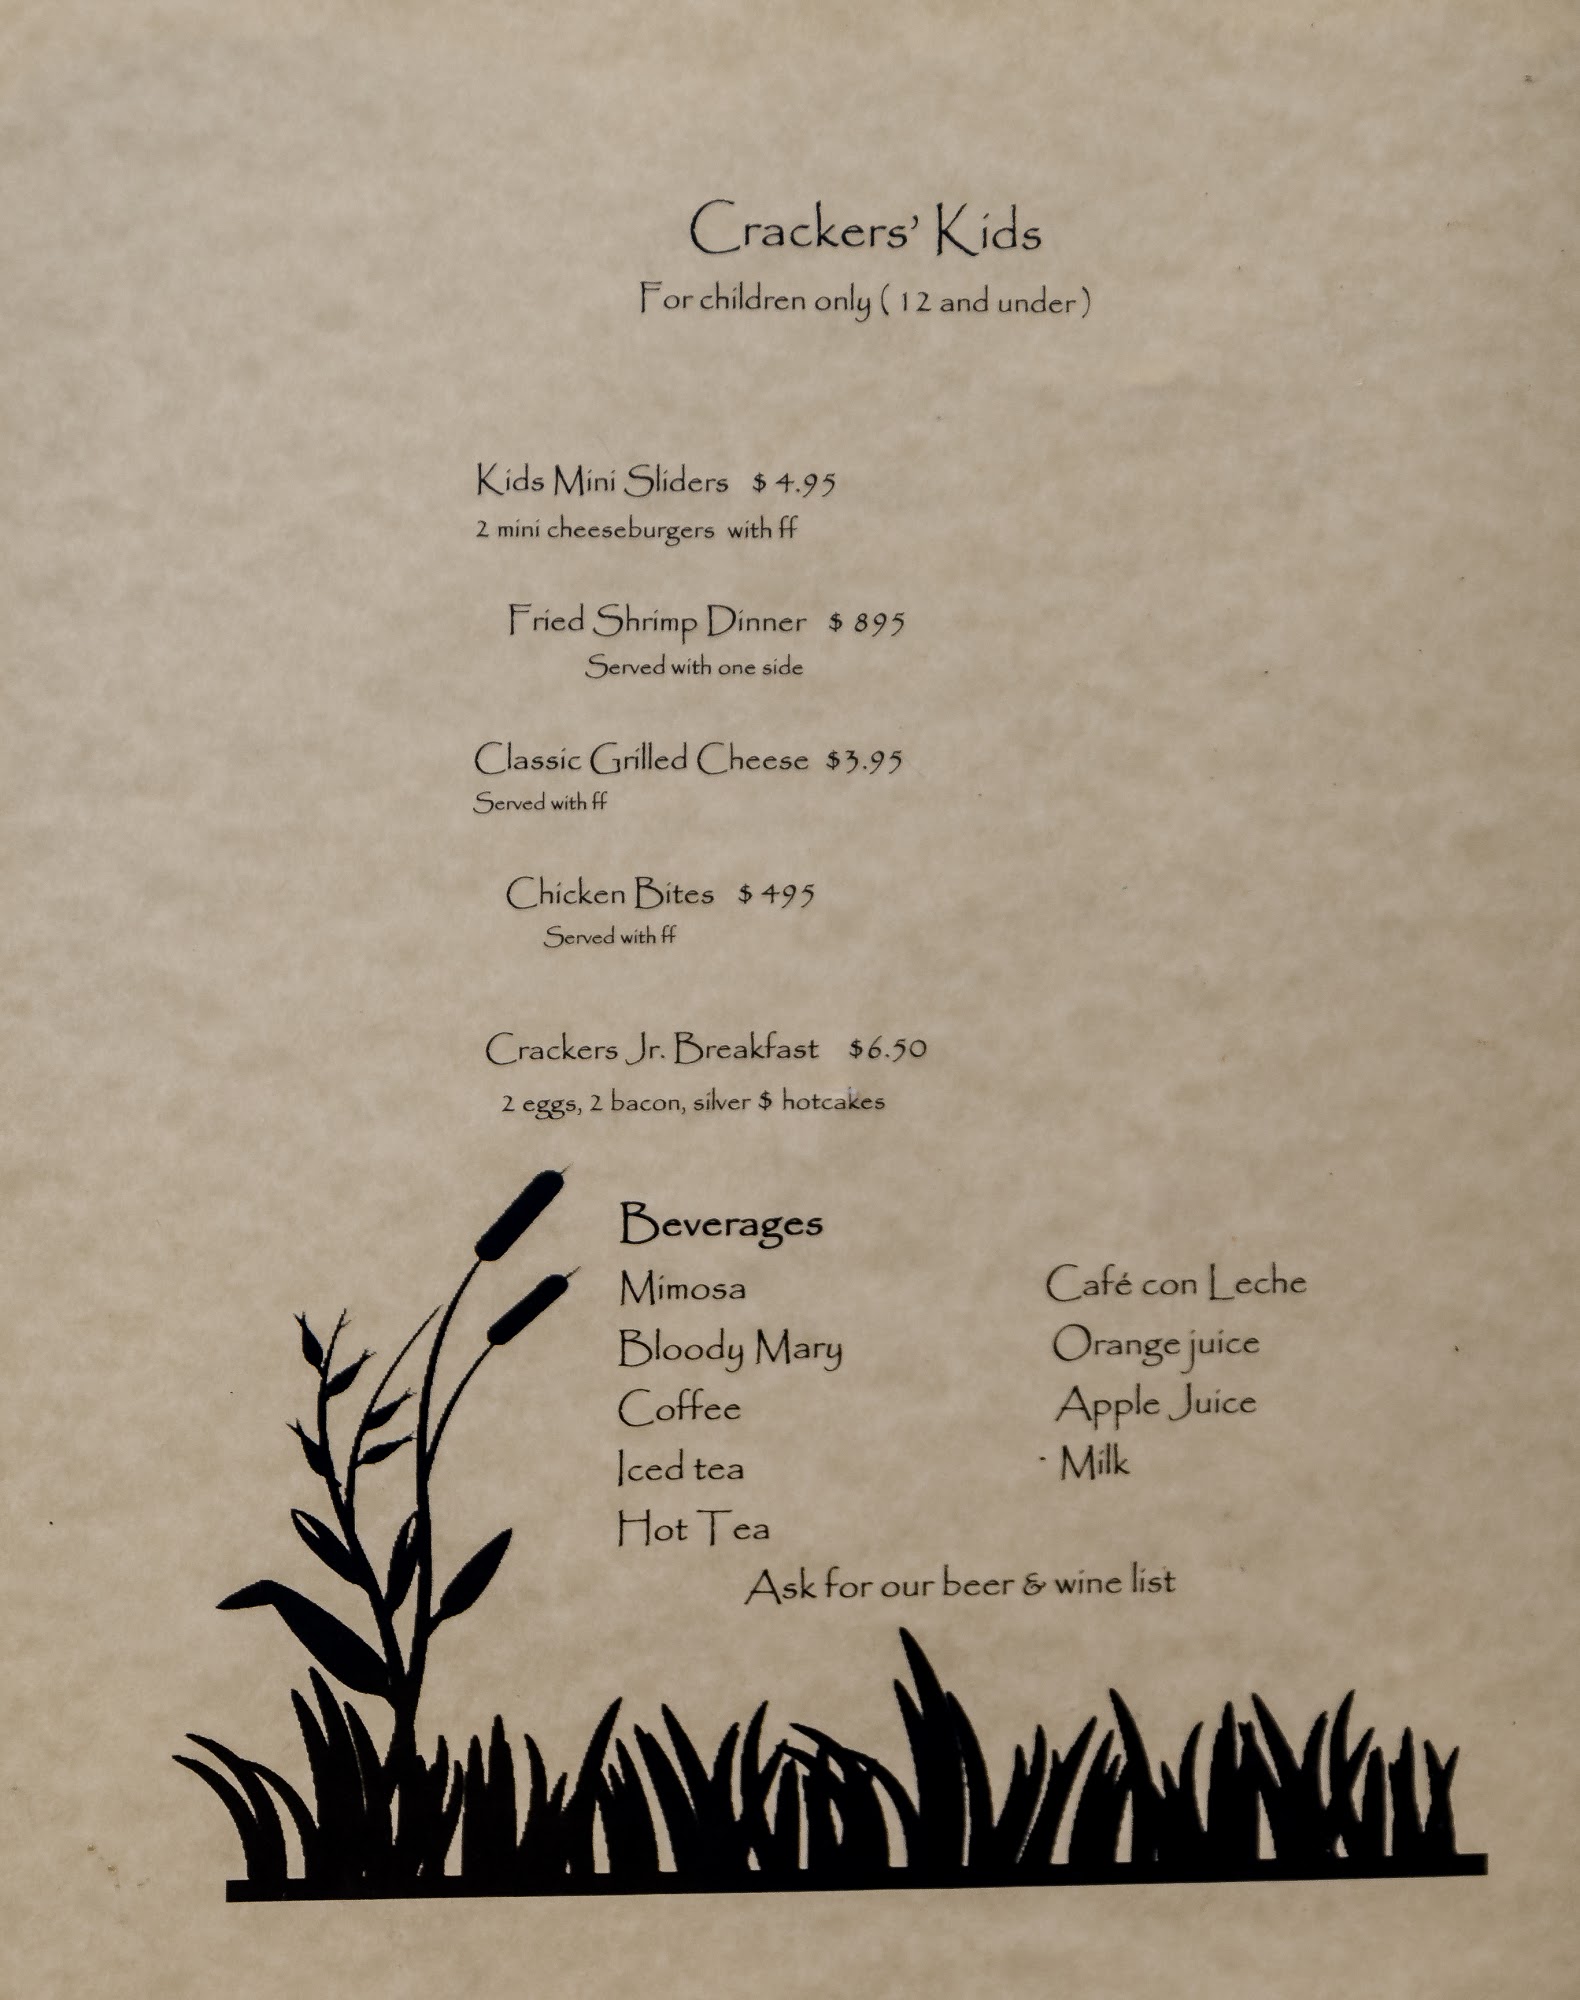 Crackers' Kids
For children only ( 12 and under )
Kids Mini Sliders $ 4.95
2 mini cheeseburgers with ff
Fried Shrimp Dinner $ 895
Served with one side
Classic Grilled Cheese $3.95
Served with ff
Chicken Bites $ 495
Served with ff
Crackers Jr. Breakfast $6.50
2 eggs, 2 bacon, silver $ hotcakes
Beverages
Mimosa
Bloody Mary
Coffee
Iced tea
Hot Tea
Café con Leche
Orange juice
Apple Juice
Milk
Ask for our beer & wine list